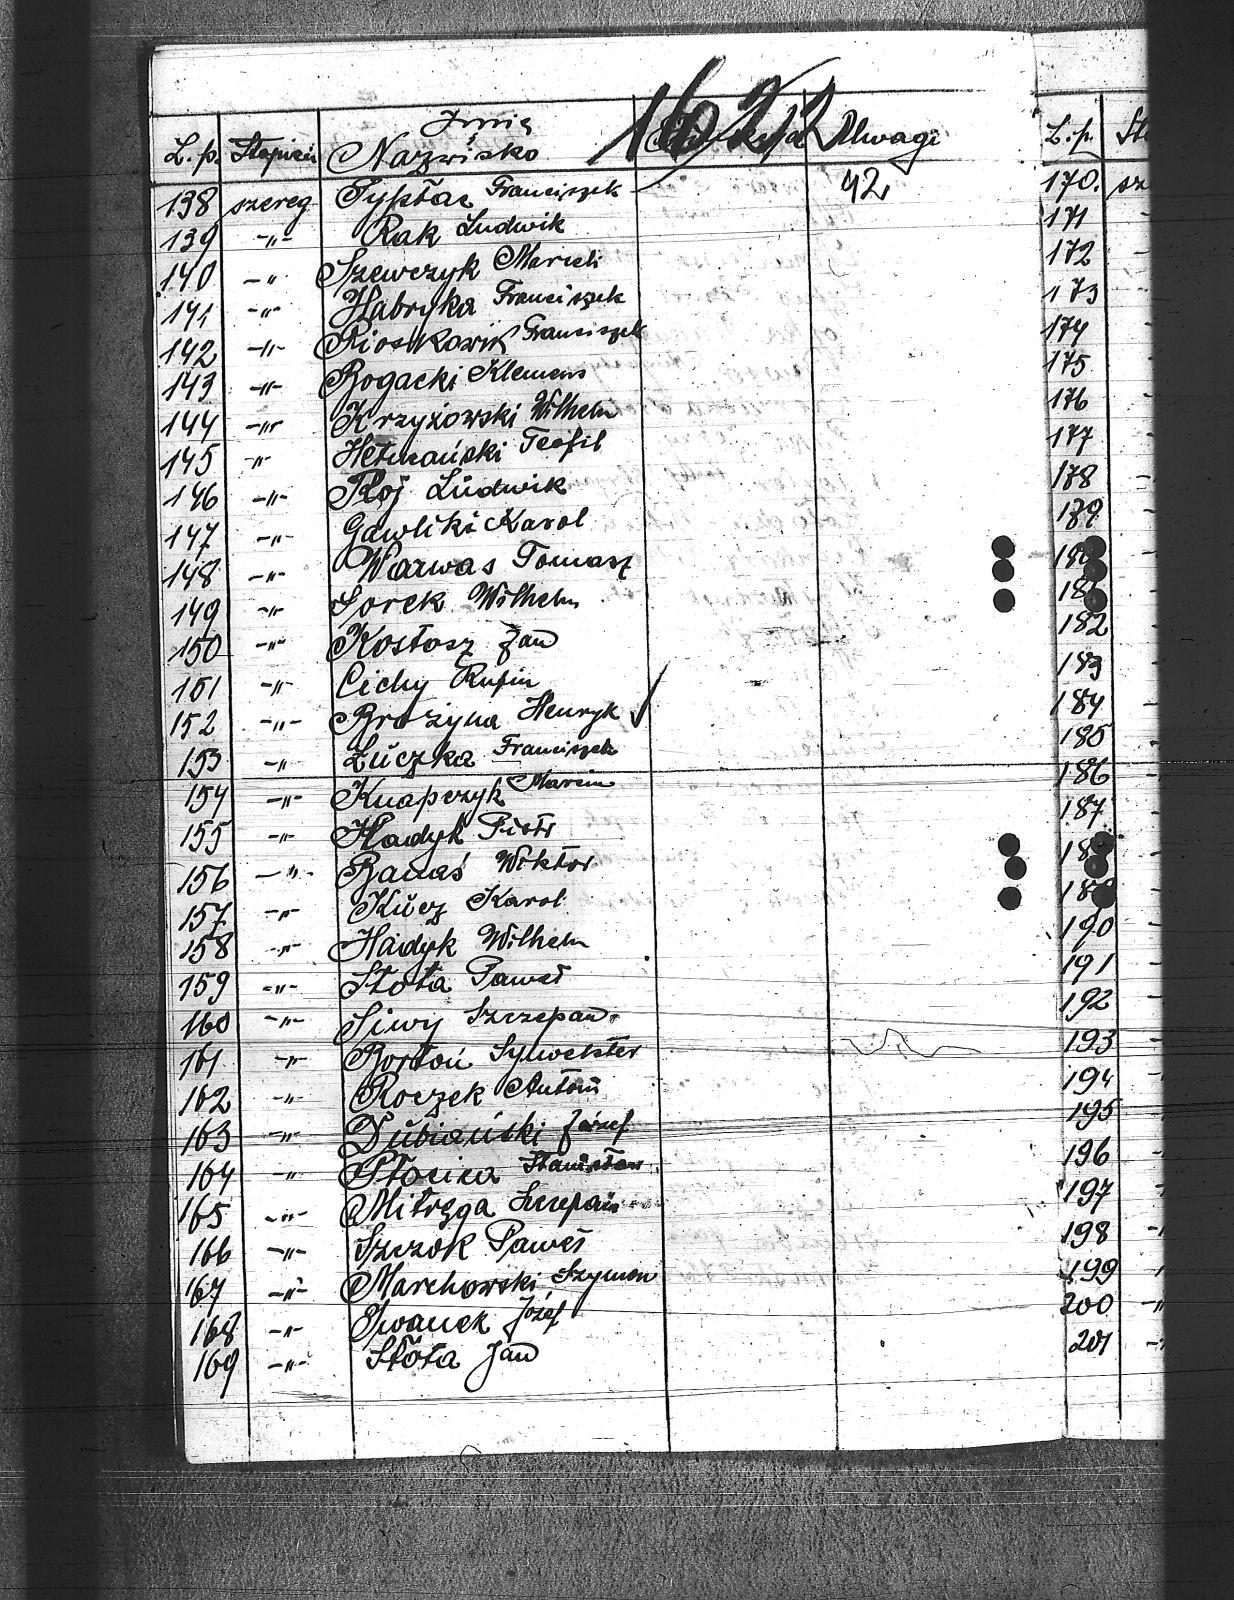 1622
L.p. Stopień Imię Nazwisko Uwagi
42
138 szereg Tyrtac Franciszek
139 -"- Rak Ludwik
140 -"- Szewczyk
141 -"- Habryka Franciszek
142 -"- Franciszek
143 -"- Bogacki Klemens
144 -"- Krzyżowski Wilhelm
145 -"- Hetmański Teofil
146 -"- Ludwik
147 -"- Gawliki Karol
148 -"- Warwas Tomasz
149 -"- Sorek Wilhelm
150 -"- Kostosz Jan
151 -"- Cichy Rufin
152 -"- Brożyna Henryk ✓
153 -"- Łuczka Franciszek
154 -"- Knapczyk Marcin
155 -"- Hadyk Piotr
156 -"- Banaś Wiktor
157 -"- Kucz Karol
158 -"- Hadyk Wilhelm
159 -"- Stoła Paweł
160 -"- Siwy Szczepan
161 -"- Bortoń Sylwester
162 -"- Roczek Antoni
163 -"- Dubiański Józef
164 -"- Stanisław
165 -"- Mitręga Szczepan
166 -"- Szczok Paweł
167 -"- Marchowski Szymon
168 -"- Iwanek Józef
169 -"- Stoła Jan
L.p.
170.
171
172
173
174
175
176
177
178
179
180
181
182
183
184
185
186
187
188
189
190
191
192
193
194
195
196
197
198
199
200
201